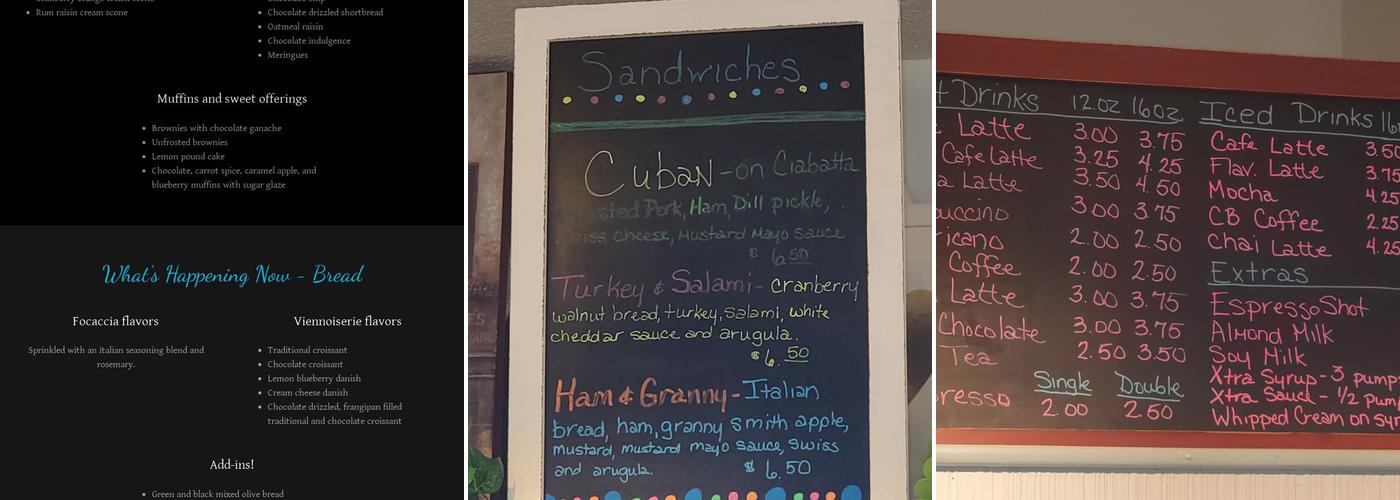 Rum raisin cream scone
Chocolate drizzled shortbread
Oatmeal raisin
Chocolate indulgence
Meringues
Muffins and sweet offerings
Brownies with chocolate ganache
Unfrosted brownies
Lemon pound cake
Chocolate, carrot spice, caramel apple, and
blueberry muffins with sugar glaze
What's Happening Now - Bread
Focaccia flavors
Sprinkled with an italian seasoning blend and
rosemary.
Viennoiserie flavors
Traditional croissant
Chocolate croissant
Lemon blueberry danish
Cream cheese danish
Chocolate drizzled, frangipan filled
traditional and chocolate croissant
Add-ins!
Green and black mixed olive bread
Sandwiches
Cuban - on Ciabatta
Pork, Ham, Dill pickle,
Swiss cheese, Mustard Mayo sauce
$ 6.50
Turkey & Salami - Cranberry
walnut bread, turkey, salami, white
cheddar sauce and arugula.
$6.50
Ham & Granny - Italian
bread, ham, granny smith apple,
mustard, mustard mayo sauce, swiss
and arugula. $6.50
Drinks 12oz 16oz
Latte 3.00 3.75
Cafe Latte 3.25 4.25
Latte 3.50 4.50
3.00 3.75
2.00 2.50
Coffee 2.00 2.50
Latte 3.00 3.75
Chocolate 3.00 3.75
Tea 2.50 3.50
Single Double
2.00 2.60
Iced Drinks
Cafe Latte 3.50
Flav. Latte 3.75
Mocha 4.25
CB Coffee 2.25
Chai Latte 4.25
Extras
Espresso Shot
Almond Milk
Soy Milk
Xtra Syrup - 3 pump
Xtra Sauce - 1/2 pump
Whipped Cream on